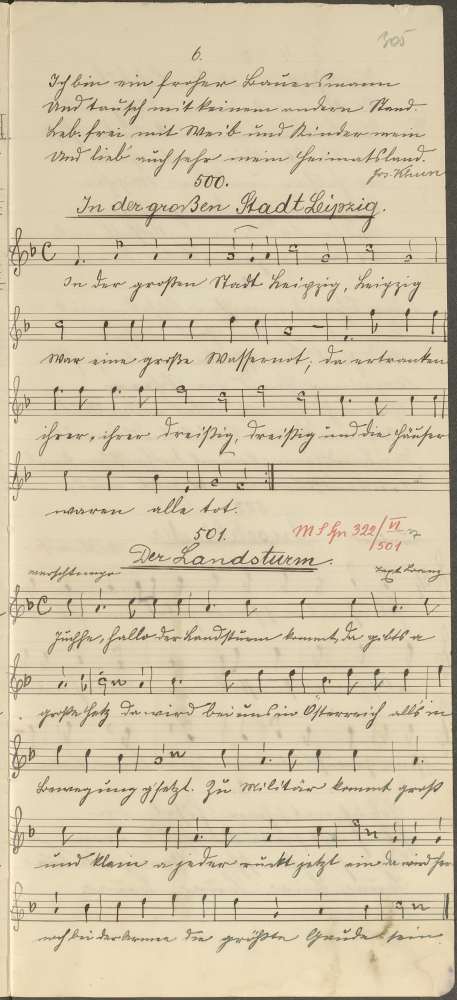 305
6.
Ich bin ein froher Bauersmann
Und tausch mit keinem andern Stand.
Leb. frei mit Weib und Kinder mein
Und lieb' auch sehr mein Heimatsland.
Jos.
500.
In der großen Stadt Leipzig.
In der großen Stadt Leipzig, Leipzig
War eine große Wassernot, da ertranken
ihrer, ihrer dreißig, dreißig und die Häuser
waren alle tot.
501.
Der Landsturm.
Marschtempo
Juchhe, hallo der Landsturm kommt, da gibts a
große Hetz da wird bei uns in Österreich alls in
Bewegung gsetzt. Zu Militär kommt groß
und klein a jeder ruckt jetzt ein da wird her
noch bei der Armee die größte Gaude sein